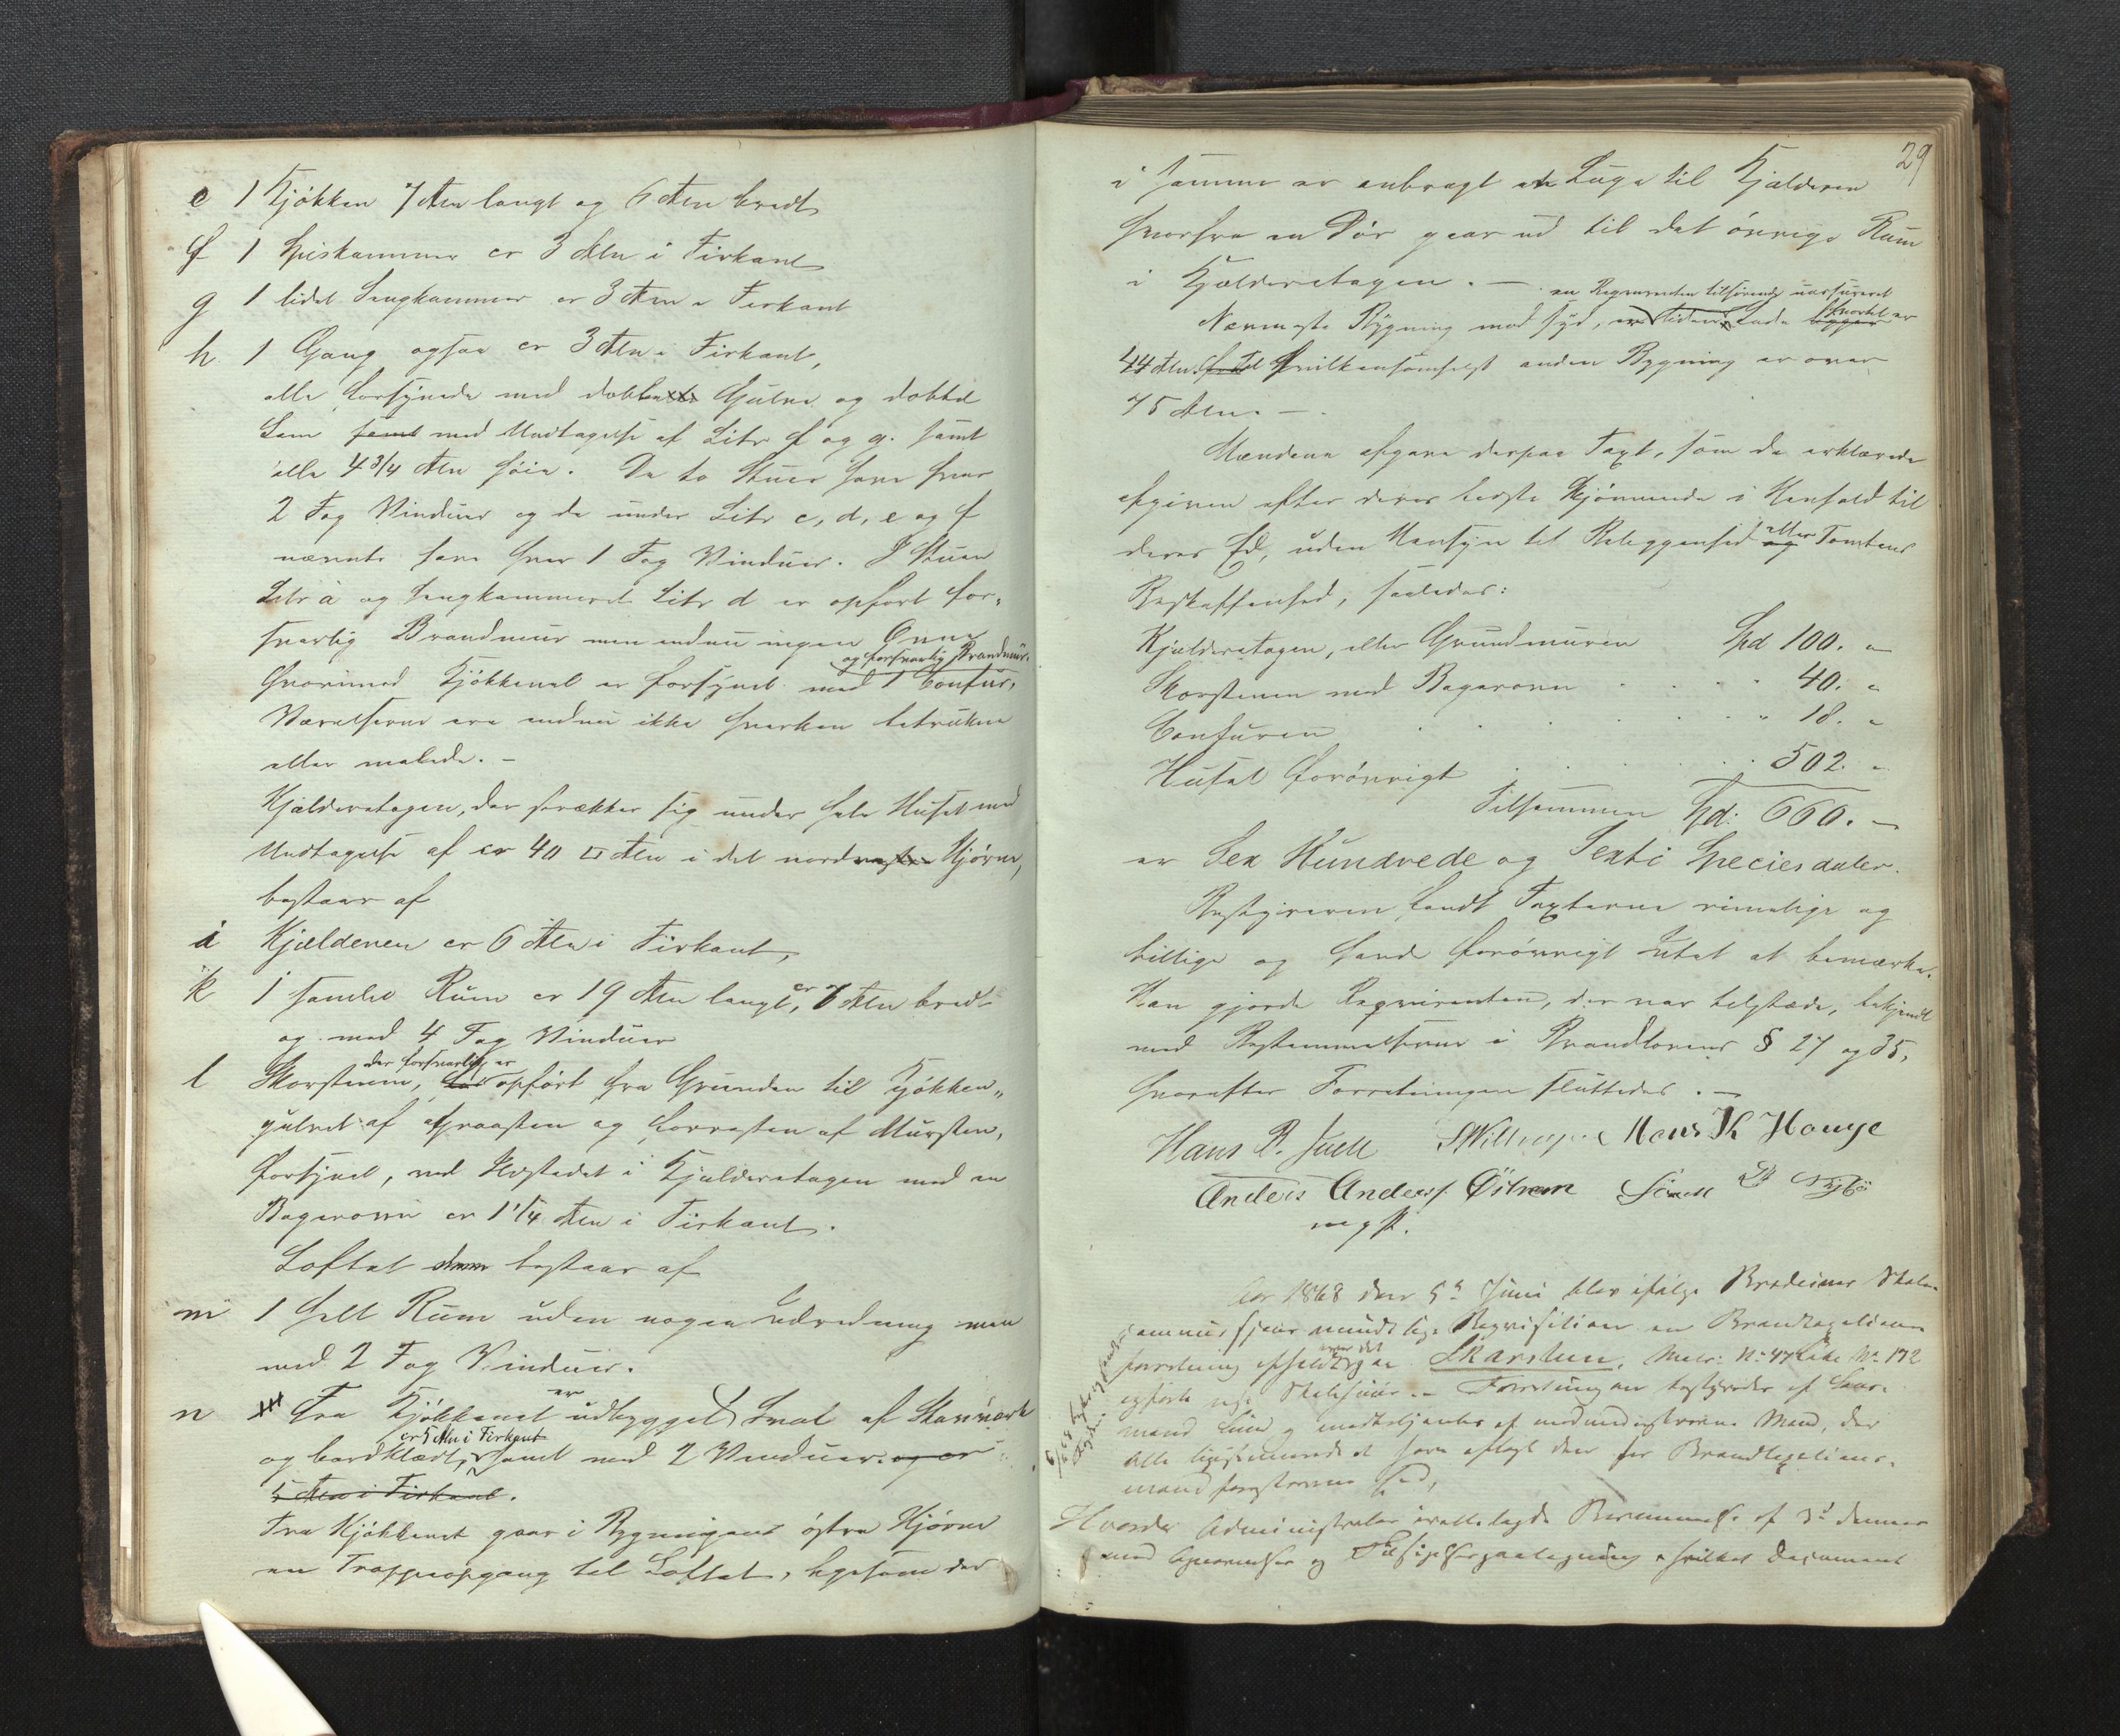 e 1 Kjökken 7 Alen langt og 6 Alen bredt
f 1 Spiskammer er 3 Alen i Firkant
g 1 lidet Sengkammer er 3 Alen i Firkant
h 1 Gang ogsaa er 3 Alen i Firkant,
alle forsynede med dobbelte Gulve og dobbel
Lem samt med Undtagelse af Litr f og g. samt
alle 4 3/4 Alen höie. De to Stuer have hver
2 Fag Vinduer og de under Litr c, d, e og f
nævnte have hver 1 Fag Vinduer. I Stuen
Litr a og Sengkammeret Litr d er opfört for-
svarlig Brandmuur men endnu ingen Ovne
og forsvarlig Brandmuur.
hvorimod Kjökkenet er forsynet med 1 Comfur,
Værelserne ere endnu ikke hverken betrukne
eller malede. -
Kjælderetagen, der strækker sig under hele Huset med
Undtagelse af er 40 □ Alen i det nordvestre Hjörne,
bestaar af
i Kjælderen er 6 Alen i Firkant,
k 1 samlet Rum er 19 Alen langt, er 7 Alen bredt
og med 4 Fag Vinduer
der forsvarlig er
l Skorstenen, opfört fra Grunden til Kjökken-
gulvet af Graasten og forresten af Mursten,
forsynet, ved Ildstedet i Kjælderetagen med en
Bagerovn er 1 1/4 Alen i Firkant.
Loftet bestaar af
m 1 helt Rum uden nogen Indredning men
med 2 Fag Vinduer.
n Fra Kjökkenet er udbygget Sval af Stavværk
er 5 Alen i Firkant
og bordklædt, samt med 2 Vinduer. og er
5 Alen i Firkant.
Fra Kjökkenet gaar i Bygningens östre Hjörne
en Trappeopgang til Loftet, ligesom der
29
i samme er anbragt en Luge til Kjælderen
hvorfra en Dör gaar ud til det övrige Rum
i Kjælderetagen. -
en Reqvirenten tilhörende uassureret
Nærmeste Bygning mod Syd, er liden Lade hvortil er
44 Alen. til hvilkensomhelst anden Bygning er over
75 Alen. -
Mændene afgave derpaa Taxt, som de erklærede
afgiven efter deres bedste Skjönnende i Henhold til
deres Ed, uden Hensyn til Beliggenhed eller Tomtens
Beskaffenhed, saaledes:
Kjælderetagen, eller Grundmuren Spd 100. "
Skorstenen med Bagerovn 40. "
Comfuren 18. "
Huset forövrigt 502. "
Tilsammen Spd: 660. -
er Sex Hundrede og Sexti Speciesdaler.
Bestyreren fandt Taxterne rimelige og
billige og havde forövrigt Intet at bemærke.
Han gjorde Reqvirenten, der var tilstæde, bekjendt
med Bestemmelserne i Brandlovens § 27 og 35,
hvorefter Forretningen sluttedes. -
Hans R. Juell Mons Th Hauge
Anders Anders. Östrem
m p P.
Aar 1868 den 5te Juni blev ifölge
mundtlige Reqvisition en Brandtaxations
forretning afholdt over det Skarstun, Matr: No 47 Löbe No 172
Forretningen bestyredes af Lens-
mand Juul og medbetjentes af Mænd, der
Alle have aflagt den for Brandtaxations-
mænd foreskrevne Ed,
Hvorda Administrator irettelagde Berammelse af 3d dennes
med og hvilket Document